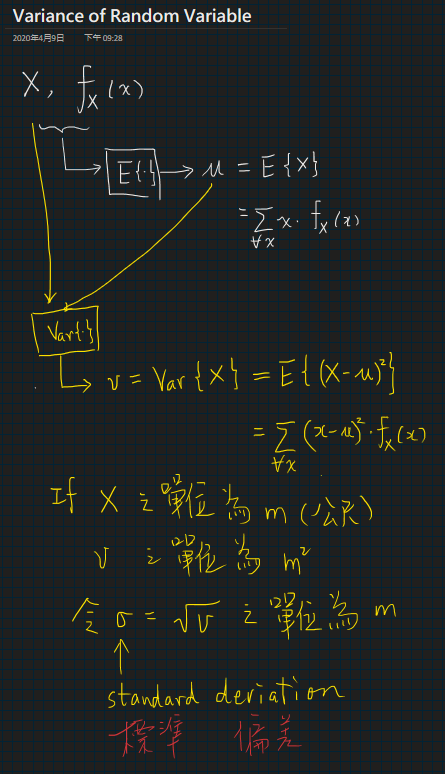 Variance of Random Variable
2020年4月9日 下午 09:28
X, f_X(x)
E{·} → μ = E{X}
= Σ_{∀x} x · f_X(x)
Var{·}
v = Var{X} = E{(X-μ)²}
= Σ_{∀x} (x-μ)² · f_X(x)
If X 之單位為 m (公尺)
v 之單位為 m²
令 σ = √v 之單位為 m
↑
standard deriation
標準 偏差